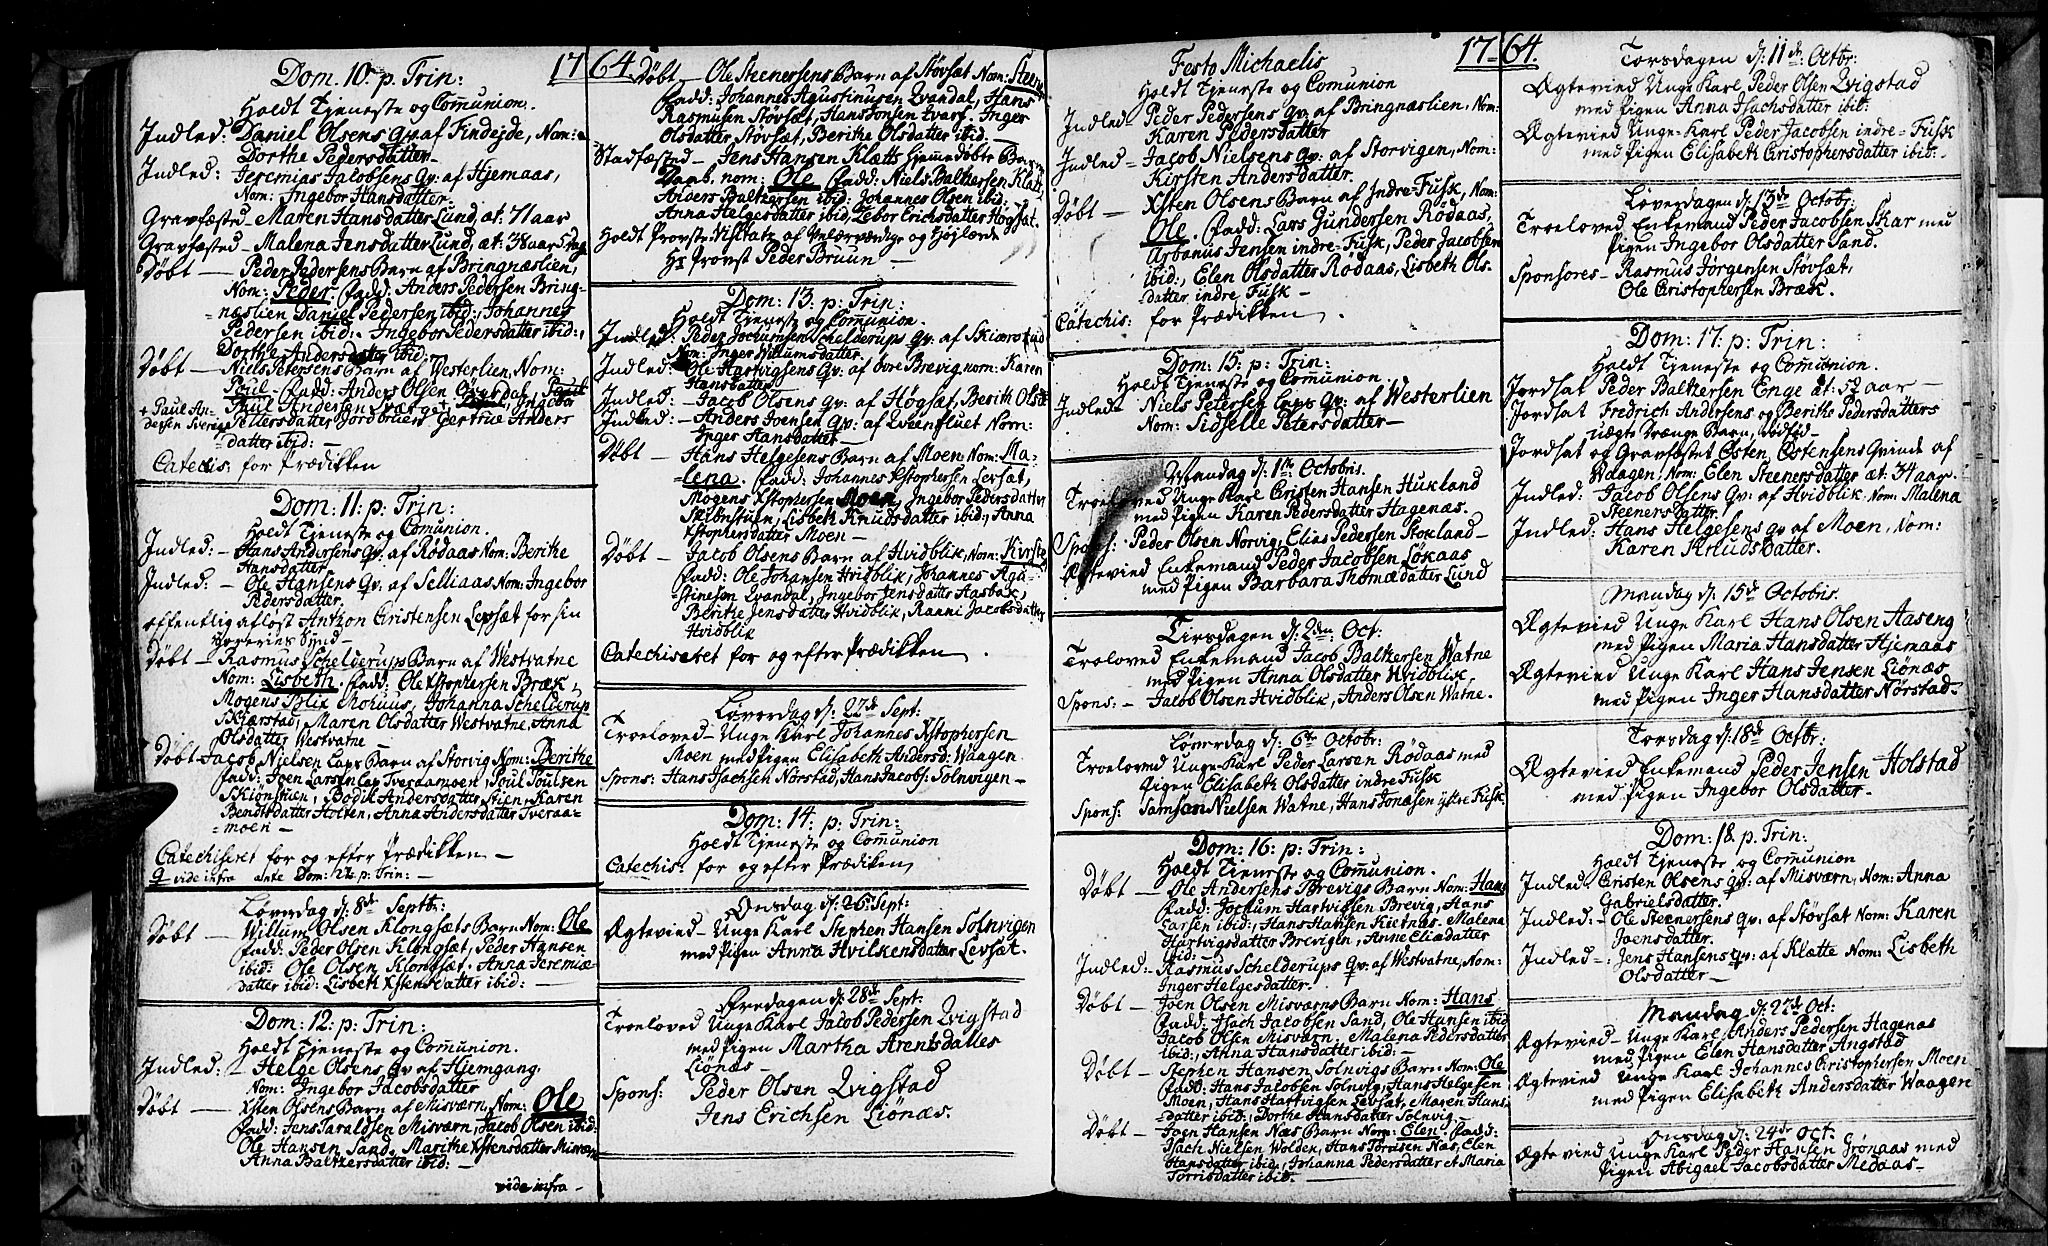 1764
Dom. 10. p. Trin:
Holdt Tjeneste og Comunion.
Indled: Daniel Olsens Qv. af Findejde, Nom:
Dorthe Pedersdatter
Indled: Jeremias Jacobsens Qv: af Hjemaas,
Nom: Ingebor Hansdatter
Gravfæsted Maren Hansdatter Lund, æt: 71 aar
Gravfæsted Malena Jensdatter Lund, æt: 38 aar
Døbt Peder Pedersens Barn af Bringnæslien,
Nom: Peder. Fadd: Anders Pedersen Bring-
næslien Daniel Pedersen ibid:, Johannes
Pedersen ibid: Ingebor Pedersdatter ibid:,
Dorthe Andersdatter ibid:
Døbt Niels Petersens Barn af Westerlien, Nom:
Poul Fadd: Anders Olsen
+ Paul An-
dersen
Paul Andersen
datter ibid: —
Catechis: for Prædikken
Dom: 11: p: Trin:
Holdt Tjeneste og Comunion.
Indled: Hans Andersens Qv: af Rødaas Nom: Berithe
Hansdatter
Indled: Ole Hansens Qv: af Selliaas Nom: Ingebor
Pedersdatter
offentlig afløst Anthon Cristensen Levsæt for sin
Døbt Rasmus Schelderups Barn af Westvatne
Nom: Lisbeth. Fadd: Ole Xstophersen Bræk,
Mogens Blix Mohuus, Johanna Schelderup
Skjærstad, Maren Olsdatter Westvatne, Anna
Olsdatter Westvatne
Døbt Jacob Nielsen Laps Barn af Storvig Nom: Berithe
Fadd: Joen Larsen Lap Tverdamoen, Poul Poulsen
Skiønstuen, Bodil Andersdatter Stien, Karen
Bendtsdatter Holten, Anna Andersdatter Tveraa-
moen —
Catechiseret for og efter Prædikken —
vide infra ante Dom: 21. p: Trin: —
Løverdag d: 8de Septbr:
Døbt — Willum Olsens Klongsæts Barn Nom: Ole
Fadd: Peder Olsen Klongsæt, Peder Hansen
ibid: Ole Olsen Klongsæt. Anna Jeremiæ
datter ibid: Lisbeth Xstensdatter ibid: —
Dom: 12: p: Trin:
Holdt Tjeneste og Comunion.
Indled: Helge Olsens Qv af Hjemgang:
Nom: Ingebor Jacobsdatter
Døbt — Xsten Olsens Barn af Misværn, Nom: Ole
Fadd: Jens Misværn, Jacob Olsen ibid:
Ole Hansen Sand, Marithe Xstensdatter Misværn
Anna Baltzersdatter ibid: —
vide infra —
Døbt — Ole Steenersens Barn af Støvsæt Nom: Steener
Fadd: Johannes Agustinusen Qvandal, Hans
Rasmusen Støvsæt, Hans Jonsen Evarf. Inger
Olsdatter Støvsæt, Berithe Olsdatter ibid —
Stadfæsted — Jens Hansen Klætts hjemmedøbte Barn
Daab. nom: Ole Fadd: Niels Baltzersen Klæt,
Anders Baltzersen ibid: Johannes Olsen ibid:
Anna Helgesdatter ibid, Zebor Erichsdatter Høgsæt.
Holdt Provste Visitatz af Velærværdige og Højlærde
Hr Provst Peder Bruun —
Dom: 13: p: Trin:
Holdt Tjeneste og Comunion.
Indled: Peder Jochumsen Schelderups Qv: af
Nom: Inger Willumsdatter
Indled: Ole Hartvigsens Qv: af øvre Brevig nom: Karen
Hansdatter
Indled: Jacob Olsens Qv: af Høgsæt, Berith Olsd
Indled: Anders Joensen Qv: af Qveenfluet Nom:
Inger Hansdatter —
Døbt — Hans Helgesens Barn af Moen Nom: Ma-
lena. Fadd: Johannes Xstophersen Levsæt,
Mogens Xstophersen Moen, Ingebor Pedersdatter
Skiønstuen, Lisbeth Knudsdatter ibid:, Anna
Xstophersdatter Moen —
Døbt — Jacob Olsens Barn af Hvidblik, Nom: Kirste
Fadd: Ole Johansen Hvidblik, Johannes Agu-
stinesen Qvandal, Ingebor Jensdatter Aasbak,
Berithe Jensdatter Hvidblik, Ranni Jacobsdatter
Hvidblik
Catechiseret for og efter Prædikken
Løverdag d: 22de Sept:
Troeloved — Unge Karl Johannes Xstophersen
Moen med Pigen Elisabeth Andersd: Waagen
Spons: Hans Isachsen Nørstad, Hans Jacobs: Solnvigen —
Dom: 14: p: Trin:
Holdt Tjeneste og Comunion
Catechis: for og efter Prædiken
Onsdag d: 26 Sept:
Ægtevied — Unge Karl Stephen Hansen Solnvigen
med Pigen Anna Hvilkensdatter Levsæt.
Fredagen d: 28de Sept:
Troeloved Unge Karl Jacob Pedersen Qvigstad
med Pigen Martha Arentsdatter
Liønæs —
Spons: Peder Olsen Qvigstad
Jens Erichsen Liønæs.
1764.
Festo Michaelis
Holdt Tjeneste og Comunion
Indled: Peder Pedersens Qv: af Bringnæslien, Nom:
Karen Pedersdatter
Indled = Jacob Nielsens Qv: af Storvigen, Nom:
Kirsten Andersdatter.
Døbt — Xsten Olsens Barn af Indre-Fusk, Nom:
Ole. Fadd: Lars Gundersen Rødaas,
Arbanus Jensen indre-Fusk, Peder Jacobsen
ibid:, Elen Olsdatter Rødaas, Lisbeth Ols-
datter indre Fusk —
Catechis: for Prædikken
Dom: 15: p: Trin:
Holdt Tjeneste og Comunion
Indled — Niels Petersen Laps Qv: af Westerlien
Nom: Sidselle Petersdatter —
Mandag d: 1te Octobris.
Troeloved Unge Karl Cristen Hansen Hukland
med Pigen Karen Pedersdatter Hagenæs.
Spons: Peder Olsen Norvig, Elias Pedersen Stokland —
Ægtevied Enkemand Peder Jacobsen Løkaas
med Pigen Barbara Thomædatter Lund
Tirsdagen d: 2den Oct:
Troeloved Enkemand Jacob Baltzersen Watne
med Pigen Anna Olsdatter Hvidblik,
Spons: — Jacob Olsen Hvidblik, Anders Olsen Watne.
Løverdag d: 6te Octobr:
Troeloved Unge Karl Peder Larsen Rødaas med
Pigen Elisabeth Olsdatter indre Fusk
Spons: Samson Nielsen Watne, Hans Jonæsen yttre Fusk
Dom: 16: p: Trin:
Holdt Tjeneste og Comunion.
Døbt — Ole Andersens Brevigs Barn Nom: Hans
Fadd: Jochum Hartvigsen Brevig, Hans
Larsen ibid:, Hans Hansen Kietnæs. Malena
Hartvigsdatter Brevigen, Anne Eliædatter
ibid: —
Indled: — Rasmus Schelderups Qv: af Westvatne, Nom:
Inger Helgesdatter.
Døbt — Joen Olsen Misværns Barn Nom: Hans
Fadd: Isach Jacobsen Sand, Ole Hansen ibid
Jacob Olsen Misværn: Malena Pedersdatter
ibid:, Anna Hansdatter ibid: —
Døbt — Stephen Hansen Solnvigs Barn Nom: Ole
Fadd: Hans Jacobsen Solnvig, Hans Helgesen
Moen, Hans Hartvigsen Levsæt, Maren Hans-
datter ibid:, Dorthe Hansdatter Solnvig —
Døbt — Joen Hansen Næs Barn Nom: Elen. Fadd:
Isach Nielsen Wolden, Hans Torrisen Næs, Elen
Hansdatter ibid:, Johanna Pedersdatter et Maria
Torrisdatter ibid: —
Torsdagen d: 11te Octbr:
Ægtevied Unge Karl Peder Olsen Qvigstad
med Pigen Anna Isachsdatter ibid:
Ægtevied Unge Karl Peder Jacobsen indre-Fusk
med Pigen Elisabeth Cristophersdatter ibid: —
Løverdagen d: 13de Octobr:
Troeloved Enkemand Peder Jacobsen Skar med
Pigen Ingebor Olsdatter Sand.
Sponsores — Rasmus Jørgensen Støvsæt,
Ole Cristophersen Bræk.
Dom: 17: p: Trin:
Holdt Tjeneste og Comunion.
Jordsat Peder Baltzersen Enge æt: 52 aar —
Jordsat Fredrich Andersens og Berithe Pedersdatters
uægte Drænge Barn, Dødfød —
Jordsat og Gravfæstet Østen Østensens Qvinde af
Waagen, Nom: Elen Steenersdatter æt: 34 aar.
Indled: Jacob Olsens Qv: af Hvidblik Nom: Malena
Steenersdatter.
Indled: Hans Helgesens Qv af Moen, Nom:
Karen Knudsdatter.
Mandag d: 15de Octobris.
Ægtevied Unge Karl Hans Olsen Aaseng
med Pigen Maria Hansdatter Hjemaas
Ægtevied Unge Karl Hans Jensen Liønæs
med Pigen Inger Hansdatter Nørstad.
Torsdag d: 18de Octbr:
Ægtevied Enkemand Peder Jensen Holstad
med Pigen Ingebor Olsdatter.
Dom: 18. p: Trin:
Holdt Tjeneste og Comunion
Indled: Cristen Olsens qv: af Misværn, Nom: Anna
Gabrielsdatter.
Indled: — Ole Steenersens Qv: af Støvsæt Nom: Karen
Joensdatter.
Indled —: Jens Hansens Qv: af Klætte Nom: Lisbeth
Olsdatter —
Mandag d: 22de Oct:
Ægtevied — Unge Karl Anders Pedersen Hagenæs
med Pigen Elen Hansdatter Angstad
Ægtevied Unge Karl Johannes Cristophersen Moen
med Pigen Elisabeth Andersdatter Waagen
Onsdag d: 24de Oct:
Ægtevied Unge Karl Peder Hansen Grønaas med
Pigen Abigael Jacobsdatter Medaas —